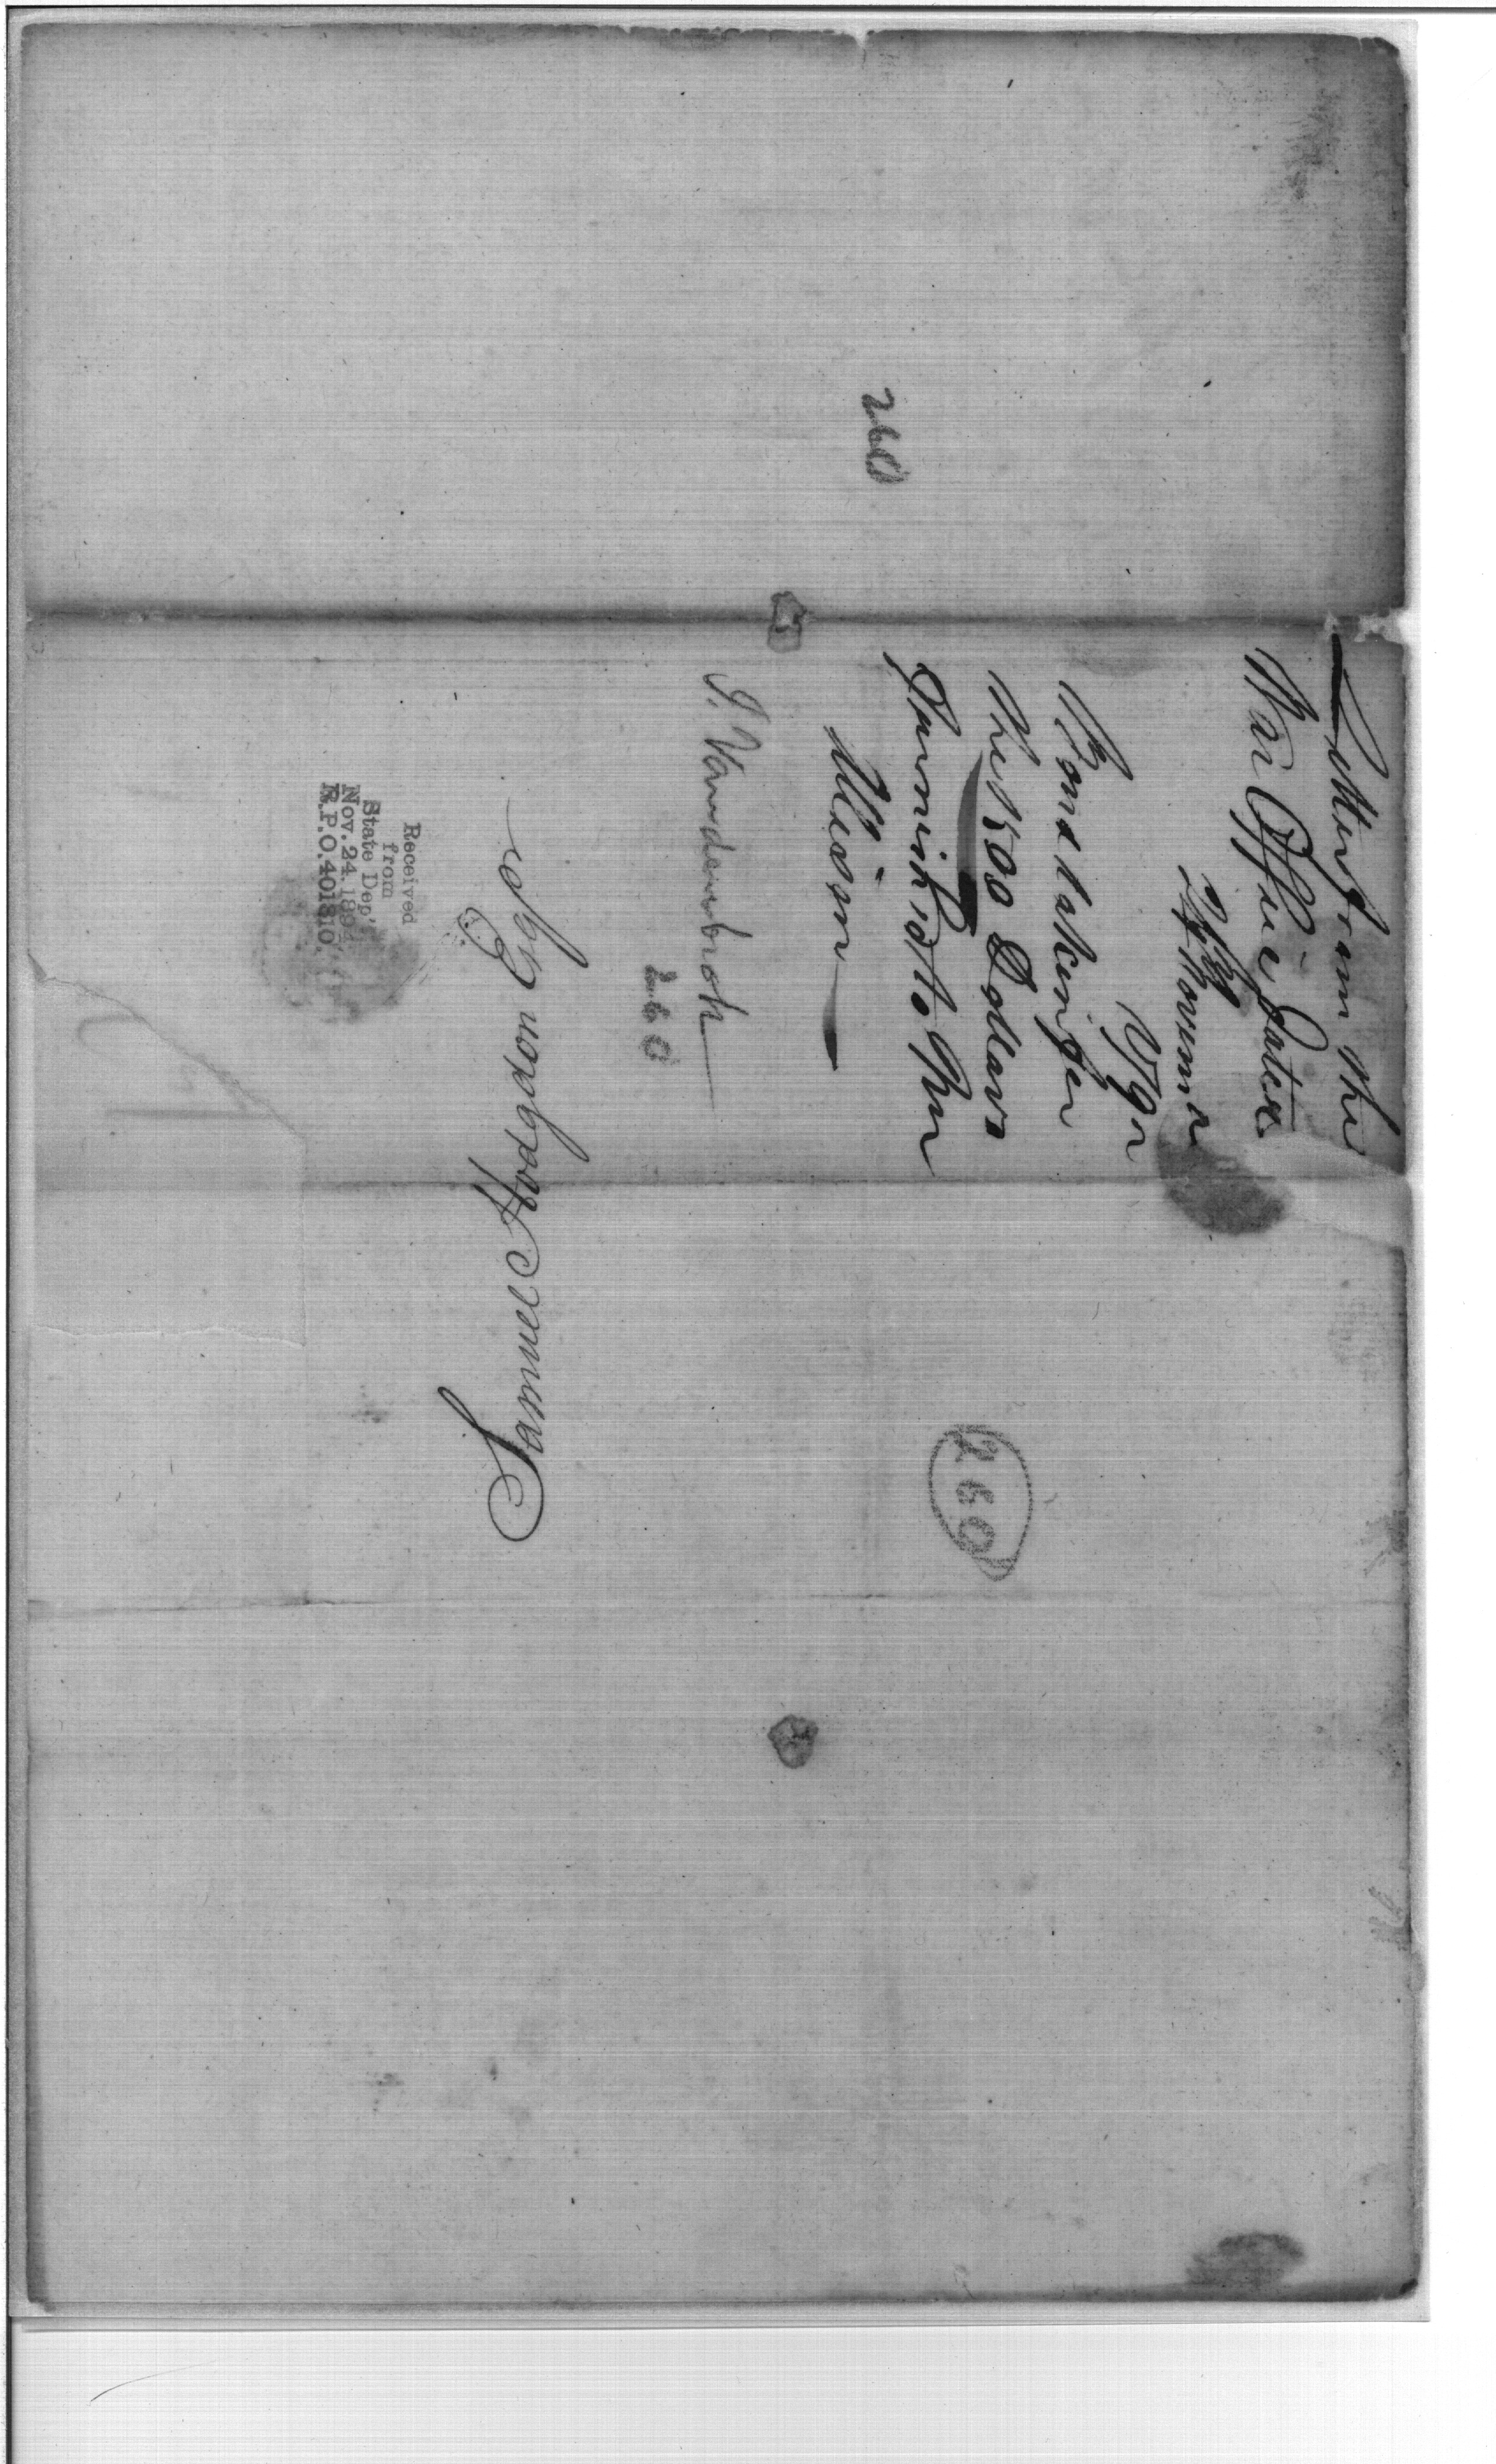 260
Letter from the
War Office dated
Novem r
179
Bond taken for
the 1500 Dollars
furnished to Mr
Alison
J. Vandenbrok
260
Samuel Hodgdon Esqr
Received
from
State Dep't
Nov. 24. 1894.
R.P.O. 401810.
260